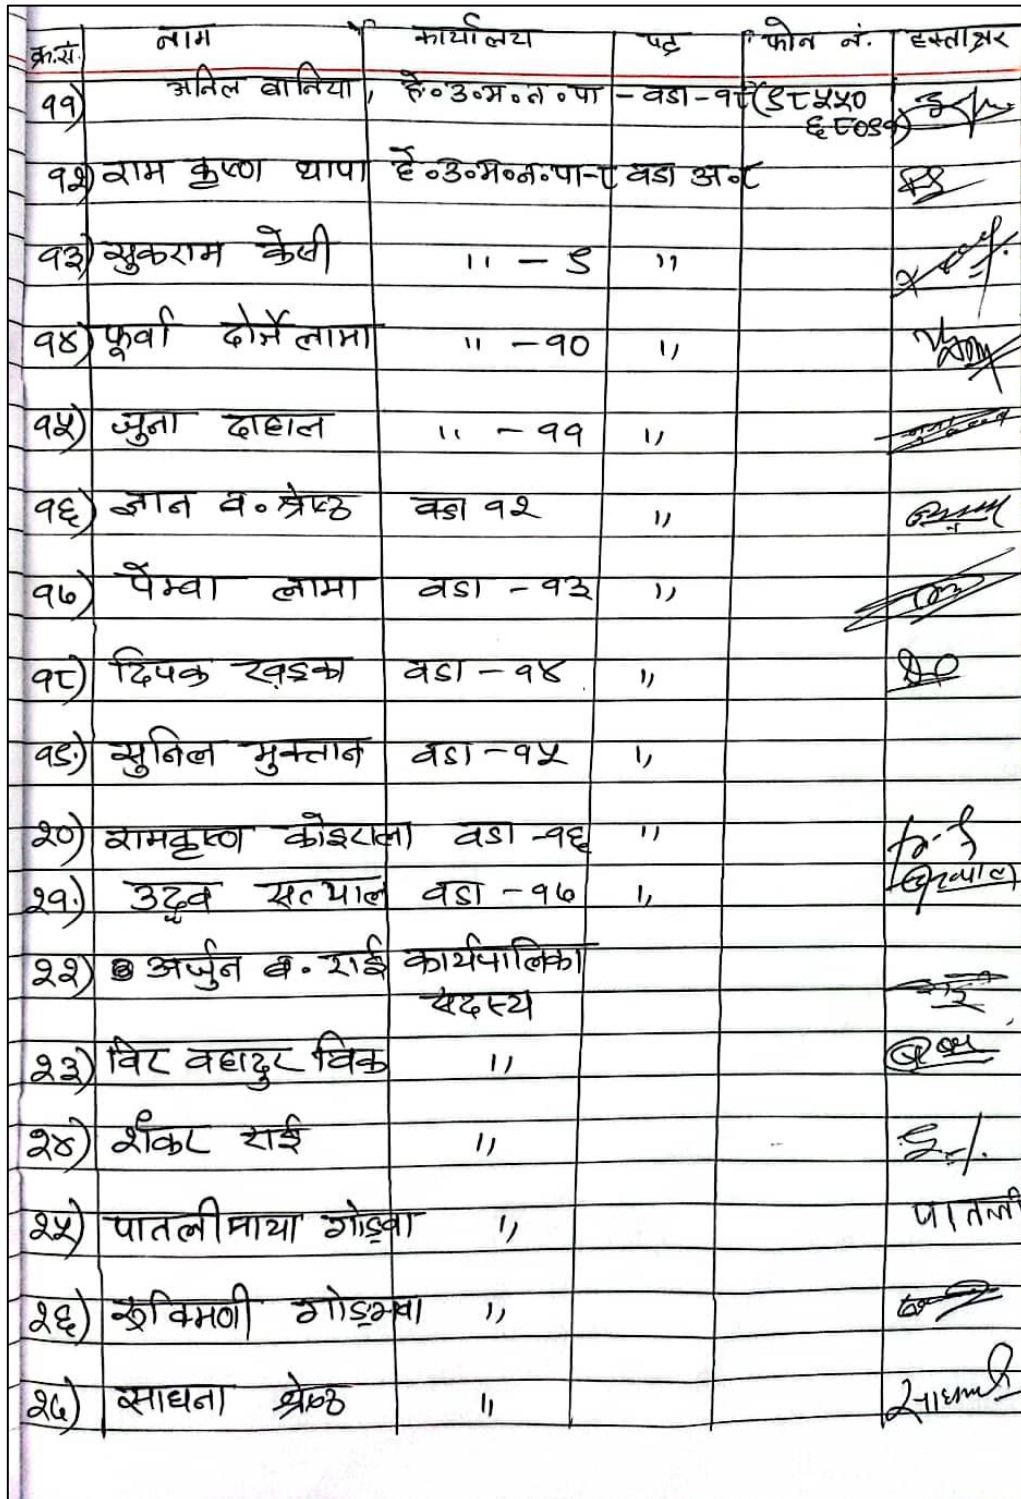 क्र.सं. नाम कार्यालय पद फोन नं. हस्ताक्षर
११) अनिल वानिया, हे०उ०म०न०पा - वडा-१८ (९८५५०
६८०९१)
१२) राम कृष्ण थापा हे०उ०म०न०पा-८ वडा अ.८
१३) सुकराम केसी " - ९ "
१४) फूर्वा दोर्जे लामा " - १० "
१५) जुना दाहाल " - ११ "
१६) ज्ञान व० श्रेष्ठ वडा १२ "
१७) पेम्वा लामा वडा - १३ "
१८) दिपक खड्का वडा - १४ "
१९) सुनिल मुक्तान वडा - १५ "
२०) रामकृष्ण कोइराला वडा - १६ "
२१) उद्धव सत्याल वडा - १७ "
२२) अर्जुन ब. राई कार्यपालिका
सदस्य
२३) विर वहादुर विक "
२४) शंकर राई "
२५) पातलीमाया गोङ्वा " पातली
२६) रूक्मिणी गोङ्मवा "
२७) साधना श्रेष्ठ " साधना